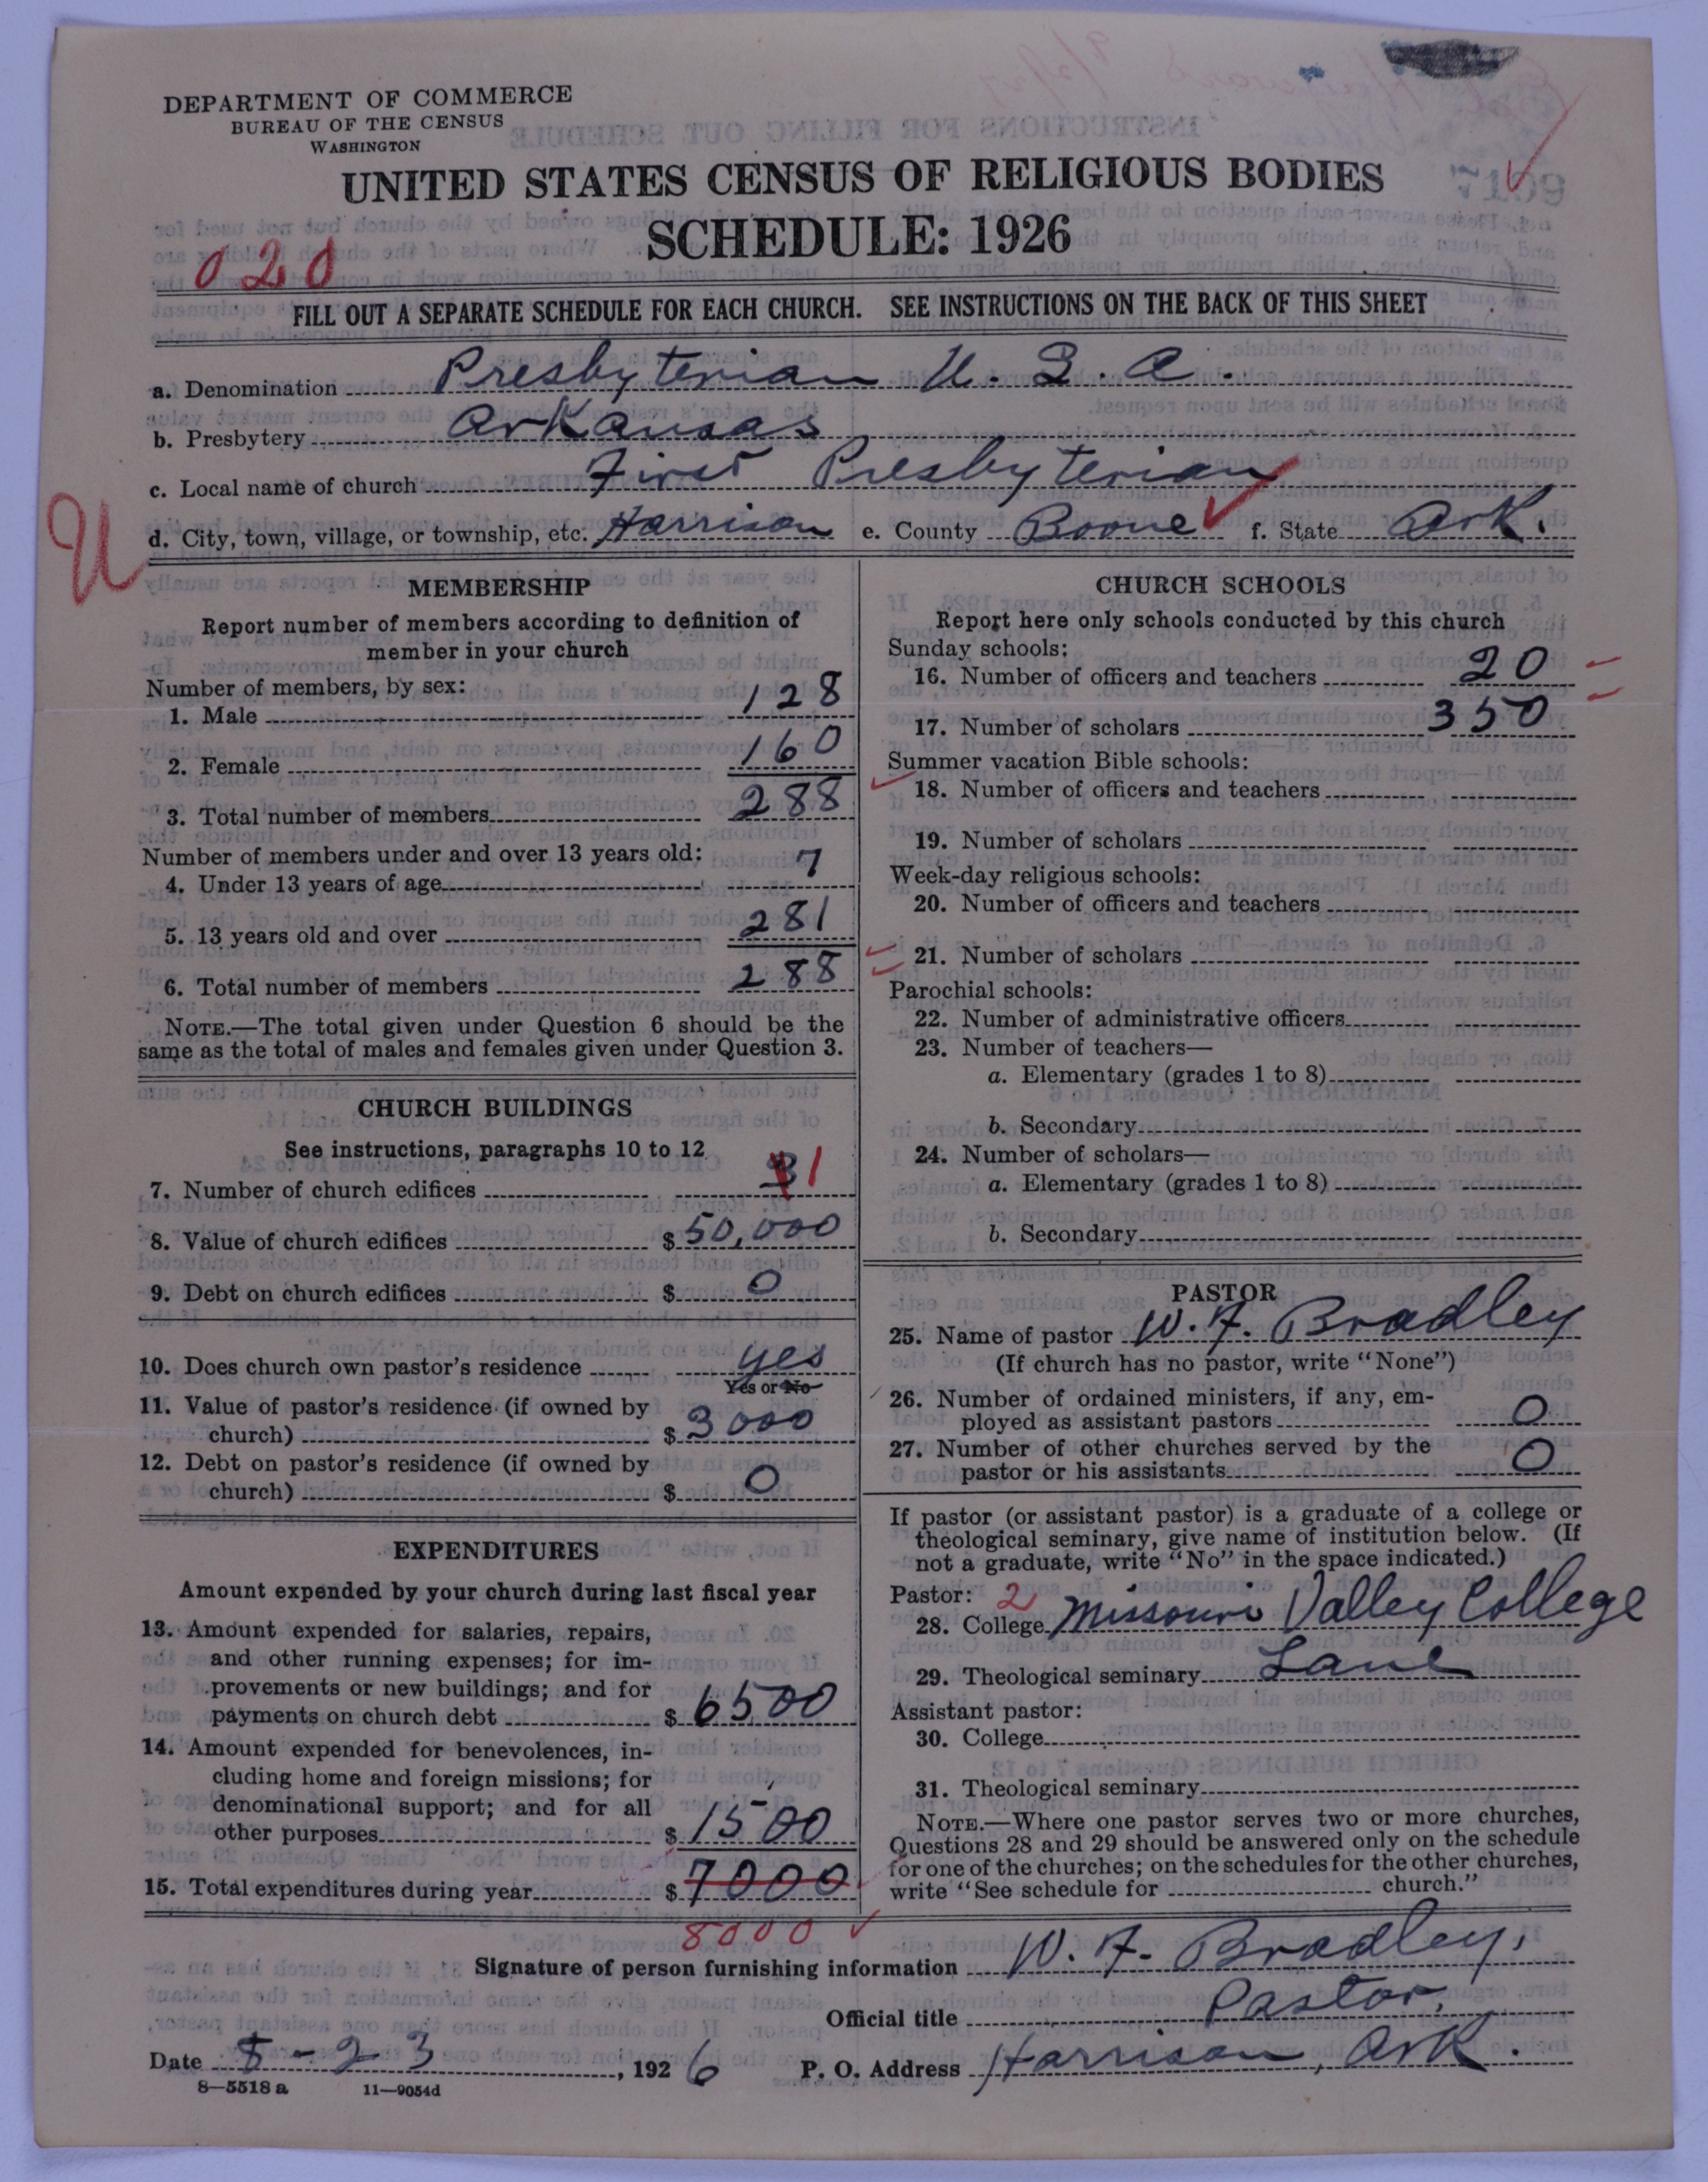 DEPARTMENT OF COMMERCE
BUREAU OF THE CENSUS
WASHINGTON
UNITED STATES CENSUS OF RELIGIOUS BODIES
SCHEDULE: 1926
020
FILL OUT A SEPARATE SCHEDULE FOR EACH CHURCH. SEE INSTRUCTIONS ON THE BACK OF THIS SHEET
a. Denomination Presbyterian U. S. A.
b. Presbytery Arkansas
c. Local name of church First Presbyterian
U
d. City, town, village, or township, etc. Harrison e. County Boone f. State Ark.
MEMBERSHIP
Report number of members according to definition of
member in your church
Number of members, by sex:
1. Male 128
2. Female 160
3. Total number of members 288
Number of members under and over 13 years old:
4. Under 13 years of age 7
5. 13 years old and over 281
6. Total number of members 288
NOTE.—The total given under Question 6 should be the
same as the total of males and females given under Question 3.
CHURCH BUILDINGS
See instructions, paragraphs 10 to 12
7. Number of church edifices 1
8. Value of church edifices $ 50,000
9. Debt on church edifices $ 0
10. Does church own pastor's residence yes
Yes or No
11. Value of pastor's residence (if owned by
church) $ 3000
12. Debt on pastor's residence (if owned by
church) $ 0
EXPENDITURES
Amount expended by your church during last fiscal year
13. Amount expended for salaries, repairs,
and other running expenses; for im-
provements or new buildings; and for
payments on church debt $ 6500
14. Amount expended for benevolences, in-
cluding home and foreign missions; for
denominational support; and for all
other purposes $ 1500
15. Total expenditures during year $ 7000
8000
CHURCH SCHOOLS
Report here only schools conducted by this church
Sunday schools:
16. Number of officers and teachers 20
17. Number of scholars 350
Summer vacation Bible schools:
18. Number of officers and teachers
19. Number of scholars
Week-day religious schools:
20. Number of officers and teachers
21. Number of scholars
Parochial schools:
22. Number of administrative officers
23. Number of teachers—
a. Elementary (grades 1 to 8)
b. Secondary
24. Number of scholars—
a. Elementary (grades 1 to 8)
b. Secondary
PASTOR
25. Name of pastor W. F. Bradley
(If church has no pastor, write "None")
26. Number of ordained ministers, if any, em-
ployed as assistant pastors 0
27. Number of other churches served by the
pastor or his assistants 0
If pastor (or assistant pastor) is a graduate of a college or
theological seminary, give name of institution below. (If
not a graduate, write "No" in the space indicated.)
Pastor: 2
28. College Missouri Valley College
29. Theological seminary Lane
Assistant pastor:
30. College
31. Theological seminary
NOTE.—Where one pastor serves two or more churches,
Questions 28 and 29 should be answered only on the schedule
for one of the churches; on the schedules for the other churches,
write "See schedule for church."
Signature of person furnishing information W. F. Bradley,
Official title Pastor.
Date 8-23, 1926 P. O. Address Harrison, Ark.
8—5518a 11—9054d